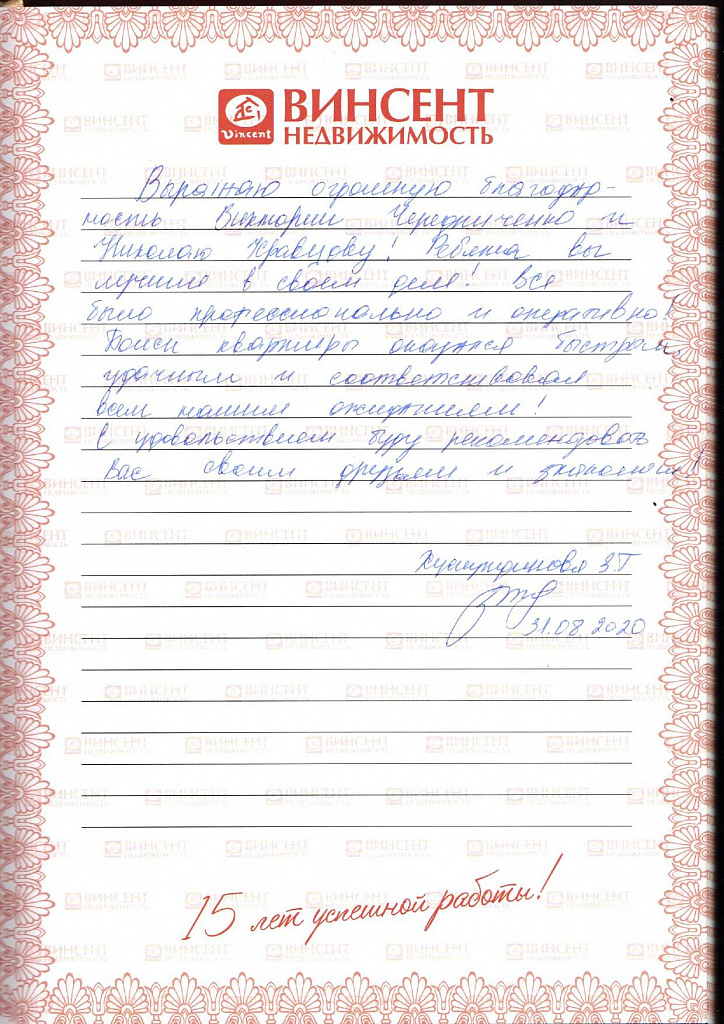 Vincent
ВИНСЕНТ
НЕДВИЖИМОСТЬ
Выражаю огромную благодар-
ность Виктории Чередниченко и
Николаю Кравцову! Ребята вы
лучшие в своём деле! Все
было профессионально и оперативно!
Поиск квартиры оказался быстрым,
удачным и соответствовал
всем нашим ожиданиям!
С удовольствием буду рекомендовать
Вас своим друзьям и знакомым!
З.Г
31.08.2020
15 лет успешной работы!